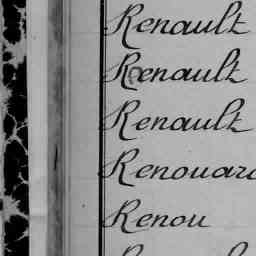 Renault
Renault
Renault
Renouard
Renou